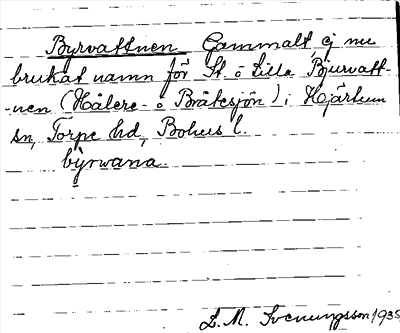 Byrvattnen Gammalt, ej nu
brukat namn för St. o Lilla Bjurvatt-
-nen (Hålere- o Bråtesjön) i Hjärtum
sn, Torpe hd, Bohus l.
byrwana.
L. M. Svenungsson 1935